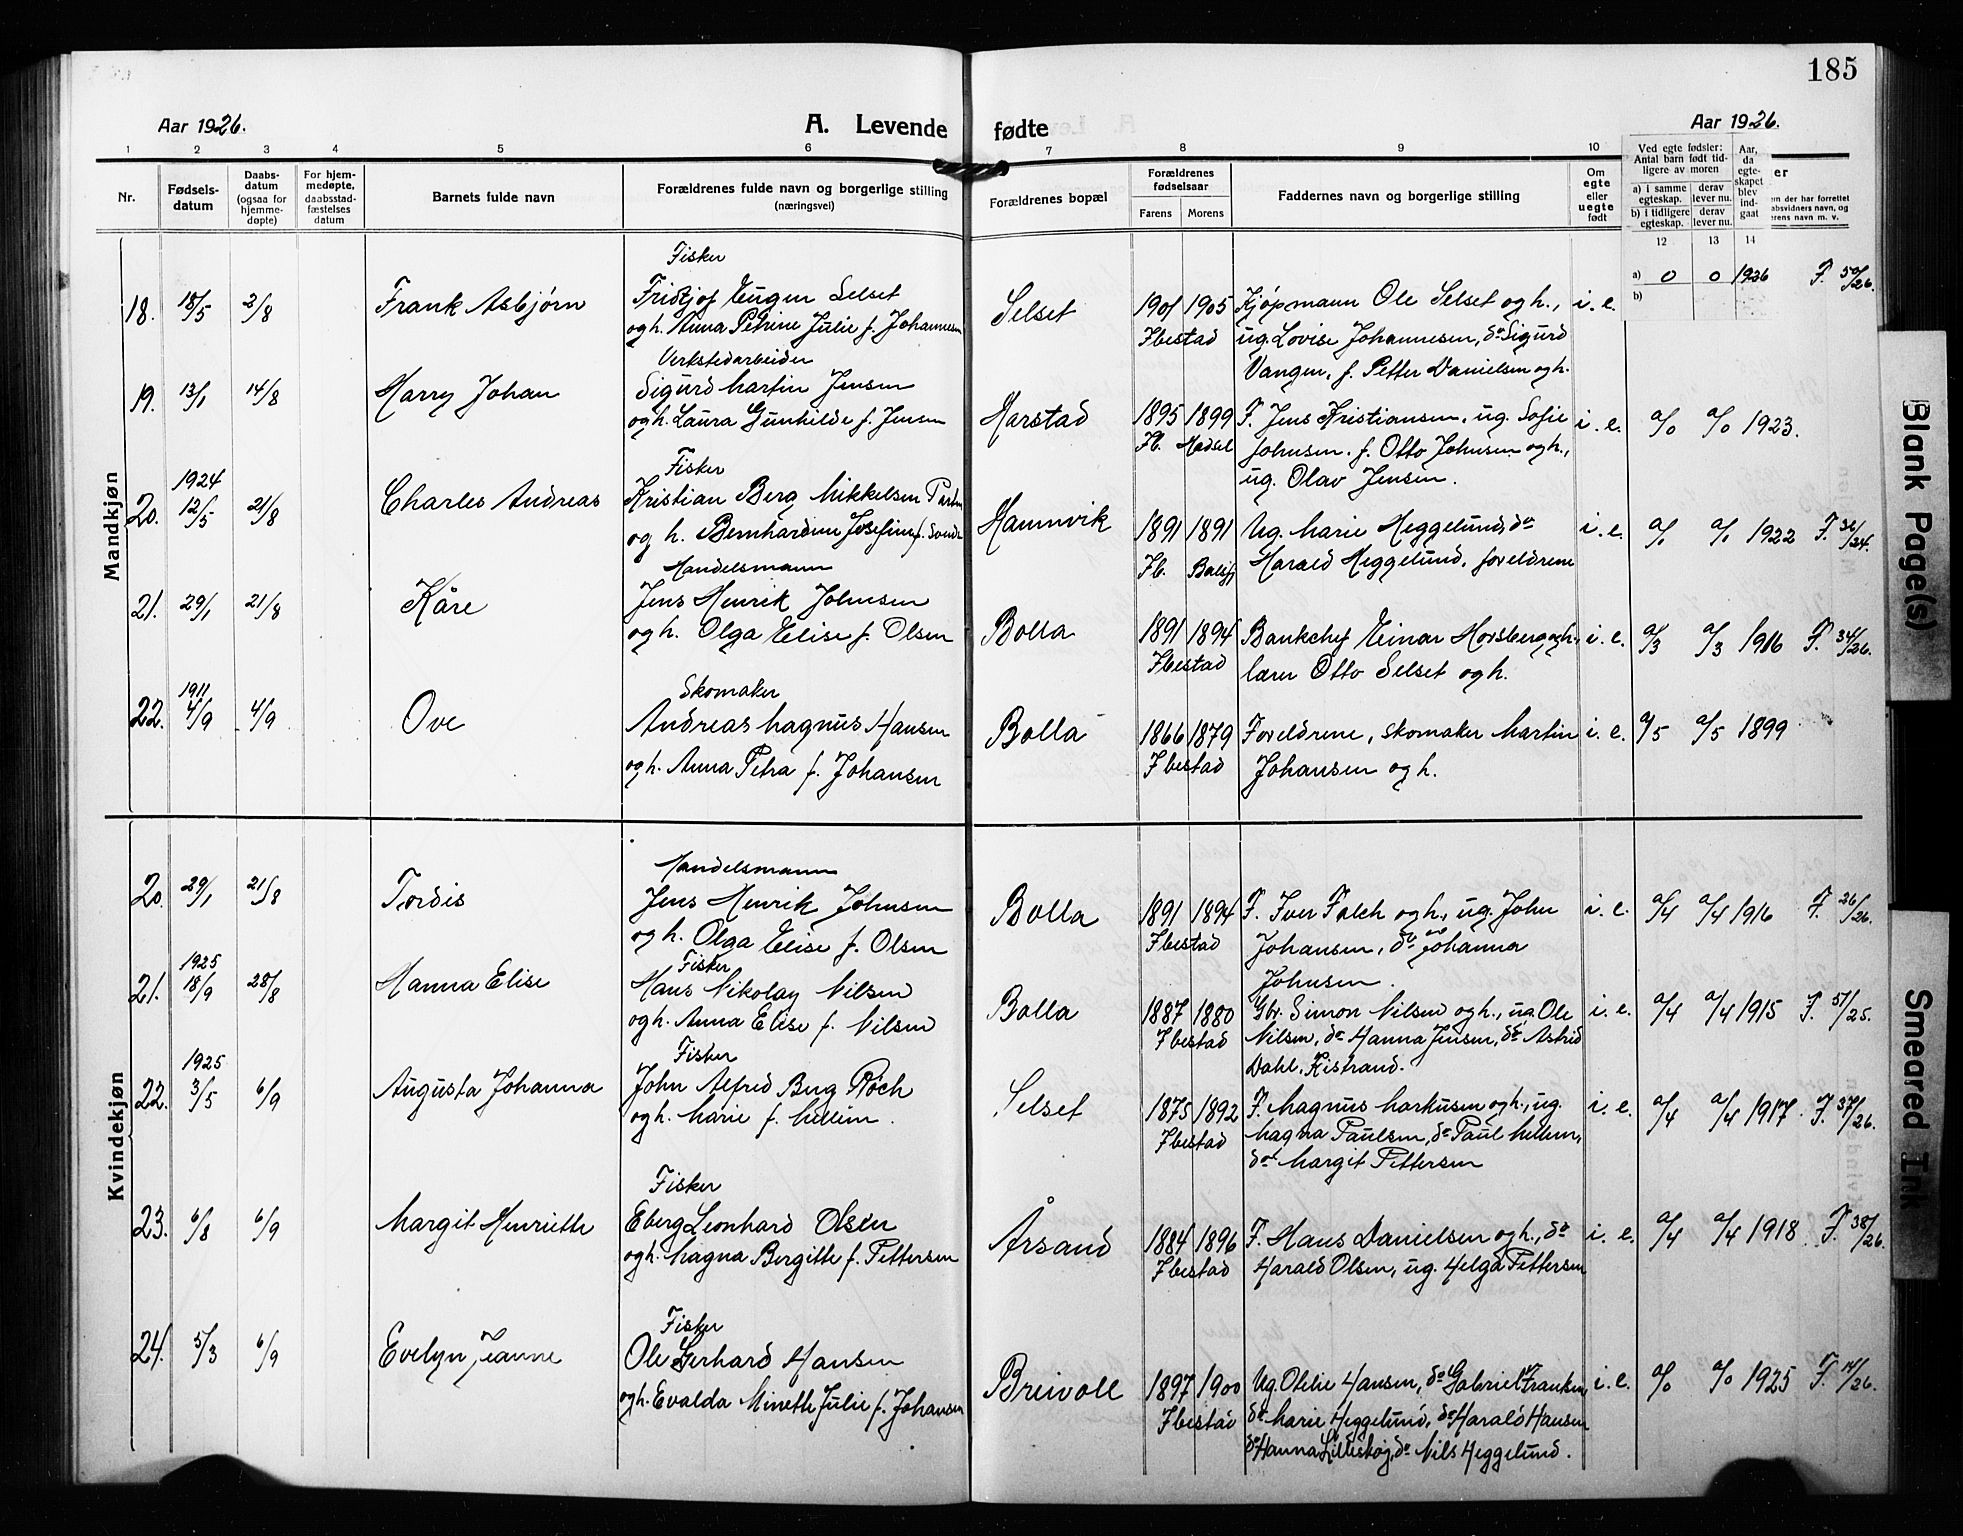 185
Aar 1926.
A. Levende fødte
Aar 1926.
1 2 3 4 5 6 7 8 9 10 12 13 14
Nr.
Fødsels-
datum
Daabs-
datum
(ogsaa for
hjemme-
døpte)
For hjem-
medøpte,
daabsstad-
fæstelses
datum
Barnets fulde navn
Forældrenes fulde navn og borgerlige stilling
(næringsvei)
Forældrenes bopæl
Forældrenes
fødselsaar
Farens Morens
Faddernes navn og borgerlige stilling
Om
egte
eller
uegte
født
Ved egte fødsler:
Antal barn født tid-
ligere av moren
a) i samme
egteskap.
derav
lever nu.
b) i tidligere
egteskap.
derav
lever nu.
Aar,
da
egte-
skapet
blev
ind-
gaat
Mandkjøn
Fisker
18. 18/5 2/8 Frank Asbjørn Fridtjof Eugen Selset Selset 1901 1905 Kjøpmann Ole Selset og h., i. e. a) 0 0 1926 F. 50/26.
b)
og h. Anna Petrine Julie f. Johannesen Ibestad ug. Lovise Johannesen, do Sigurd
Verkstedarbeider Vangen, f. Petter Danielsen og h.
19. 13/1 14/8 Harry Johan Sigurd Martin Jensen
og h. Laura Gunhilde f. Jensen Harstad 1895 1899 F. Jens Kristiansen, ug. Sofie i. e. a/0 a/0 1923.
Ib. Johnsen. f. Otto Johnsen og h.,
Fisker ug. Olav Jensen.
1924
20. 12/5 21/8 Charles Andreas Kristian Berg Mikkelsen
og h. Bernhardine Josefine f. Hamnvik 1891 1891 Ug. Marie Heggelund, do i. e. 1922 F. 36/24.
Handelsmann Ib. Harald Heggelund, foreldrene
21. 29/1 21/8 Kåre Jens Henrik Johnsen
og h. Olga Elise f. Olsen Bolla 1891 1894 Bankchef Einar Horsberg og h., i. e. a/3 a/3 1916 F. 34/26.
Ibestad lærer Otto Selset og h.
Skomaker
1911
22. 4/9 4/9 Ove Andreas Magnus Hansen Bolla 1866 1879 Foreldrene, skomaker Martin i. e. a/5 a/5 1899
og h. Anna Petra f. Johansen Ibestad Johansen og h.
Kvindekjøn
Handelsmann
20. 29/1 21/8 Tordis Jens Henrik Johnsen Bolla 1891 1894 F. Iver Falch og h., ug. John i. e. a/4 a/4 1916 F. 26/26.
og h. Olga Elise f. Olsen Ibestad Johansen, do Johanna
Fisker Johnsen.
1925
21. 18/9 28/8 Hanna Elise Hans Nikolay Nilsen Bolla 1887 1880 Gbr. Simon Nilsen og h., ug. Ole i. e. a/4 a/4 1915 F. 57/25.
og h. Anna Elise f. Nilsen Ibestad Nilsen, do Hanna Jensen, do Astrid
Fisker Dahl, Kistrand.
1925
22. 3/5 6/9 Augusta Johanna John Alfred Berg Röch Selset 1875 1892 F. Magnus Markusen og h., ug. i. e. a/4 a/4 1917. F. 37/26.
og h. Marie f. Mellem. Ibestad Magna Paulsen, do Paul Mellem,
do Margit Pettersen
Fisker
23. 6/8 6/9 Margit Henriette Eberg Leonhard Olsen Årsand 1884 1896 F. Hans Danielsen og h., do i. e. a/4 a/4 1918 F. 38/26.
og h. Magna Bergitte f. Pettersen Ibestad Harald Olsen, ug. Helga Pettersen
Fisker
24. 5/3 6/9 Evelyn Jeanne Ole Gerhard Hansen Breivoll 1897 1900 Ug. Otelie Hansen, do Gabriel Franksen, i. e. a/0 a/0 1925 F.
og h. Evalda Minette Julie f. Johansen Ibestad do Marie Heggelund, do Harald Hansen
do Hanna Lilleskog, do Nils Heggelund.
Blank Page(s)
Smeared Ink